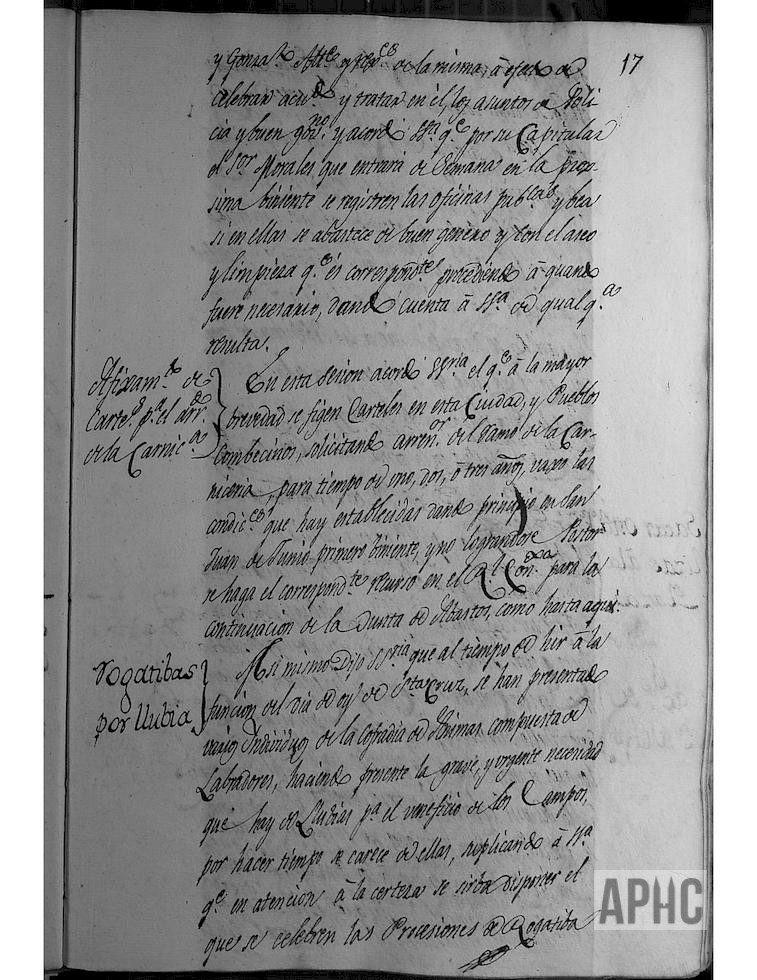 17
y Gonzaz Attc y Rexres de la misma, à efecto de
celebrar acuerdo y tratar en el los asuntos de Poli
cia y buen govno. y acordó SSa qe por su Capitular
el Sor Morales que entrará de Semana en la proxi-
sima biniente se registren las oficinas pubcas y bea
si en ellas se abastece de buen genero y con el aseo
y limpieza qe es correspondte procediendo à quanto
fuere necesario, dando cuenta à SSa de qualqa
resulta.
Afixamto de
Cartes pa el arrdo
de la Carnica
En esta sesion acordó SSria el qe à la mayor
brevedad se figen Carteles en esta Ciudad, y Pueblos
Combecinos, solicitando arrenor del Ramo de la Car-
niceria, para tiempo de uno, dos, ò tres años, vaxo las
condices que hay establecidas dando principio en San
Juan de Junio primero biniente, y no lograndose Postor
se haga el correspondte recurso en el Rl Con para la
continuacion de la Junta de Abastos, como hasta aqui.
Rogatibas
por llubia
Asi mismo Dijo SSria que al tiempo de hir à la
funcion del dia de oy de Sta Cruz, se han presentado
varios Individuos de la Cofradia de Animas compuesta de
Labradores, haciendo presente la grave, y urgente necesidad
que hay de Llubias pa el veneficio de los Campos,
por hacer tiempo se carece de ellas, suplicando à SSa
qe en atencion à la certeza se sirba disponer el
que se celebren las Procesiones de Rogatiba
APHC